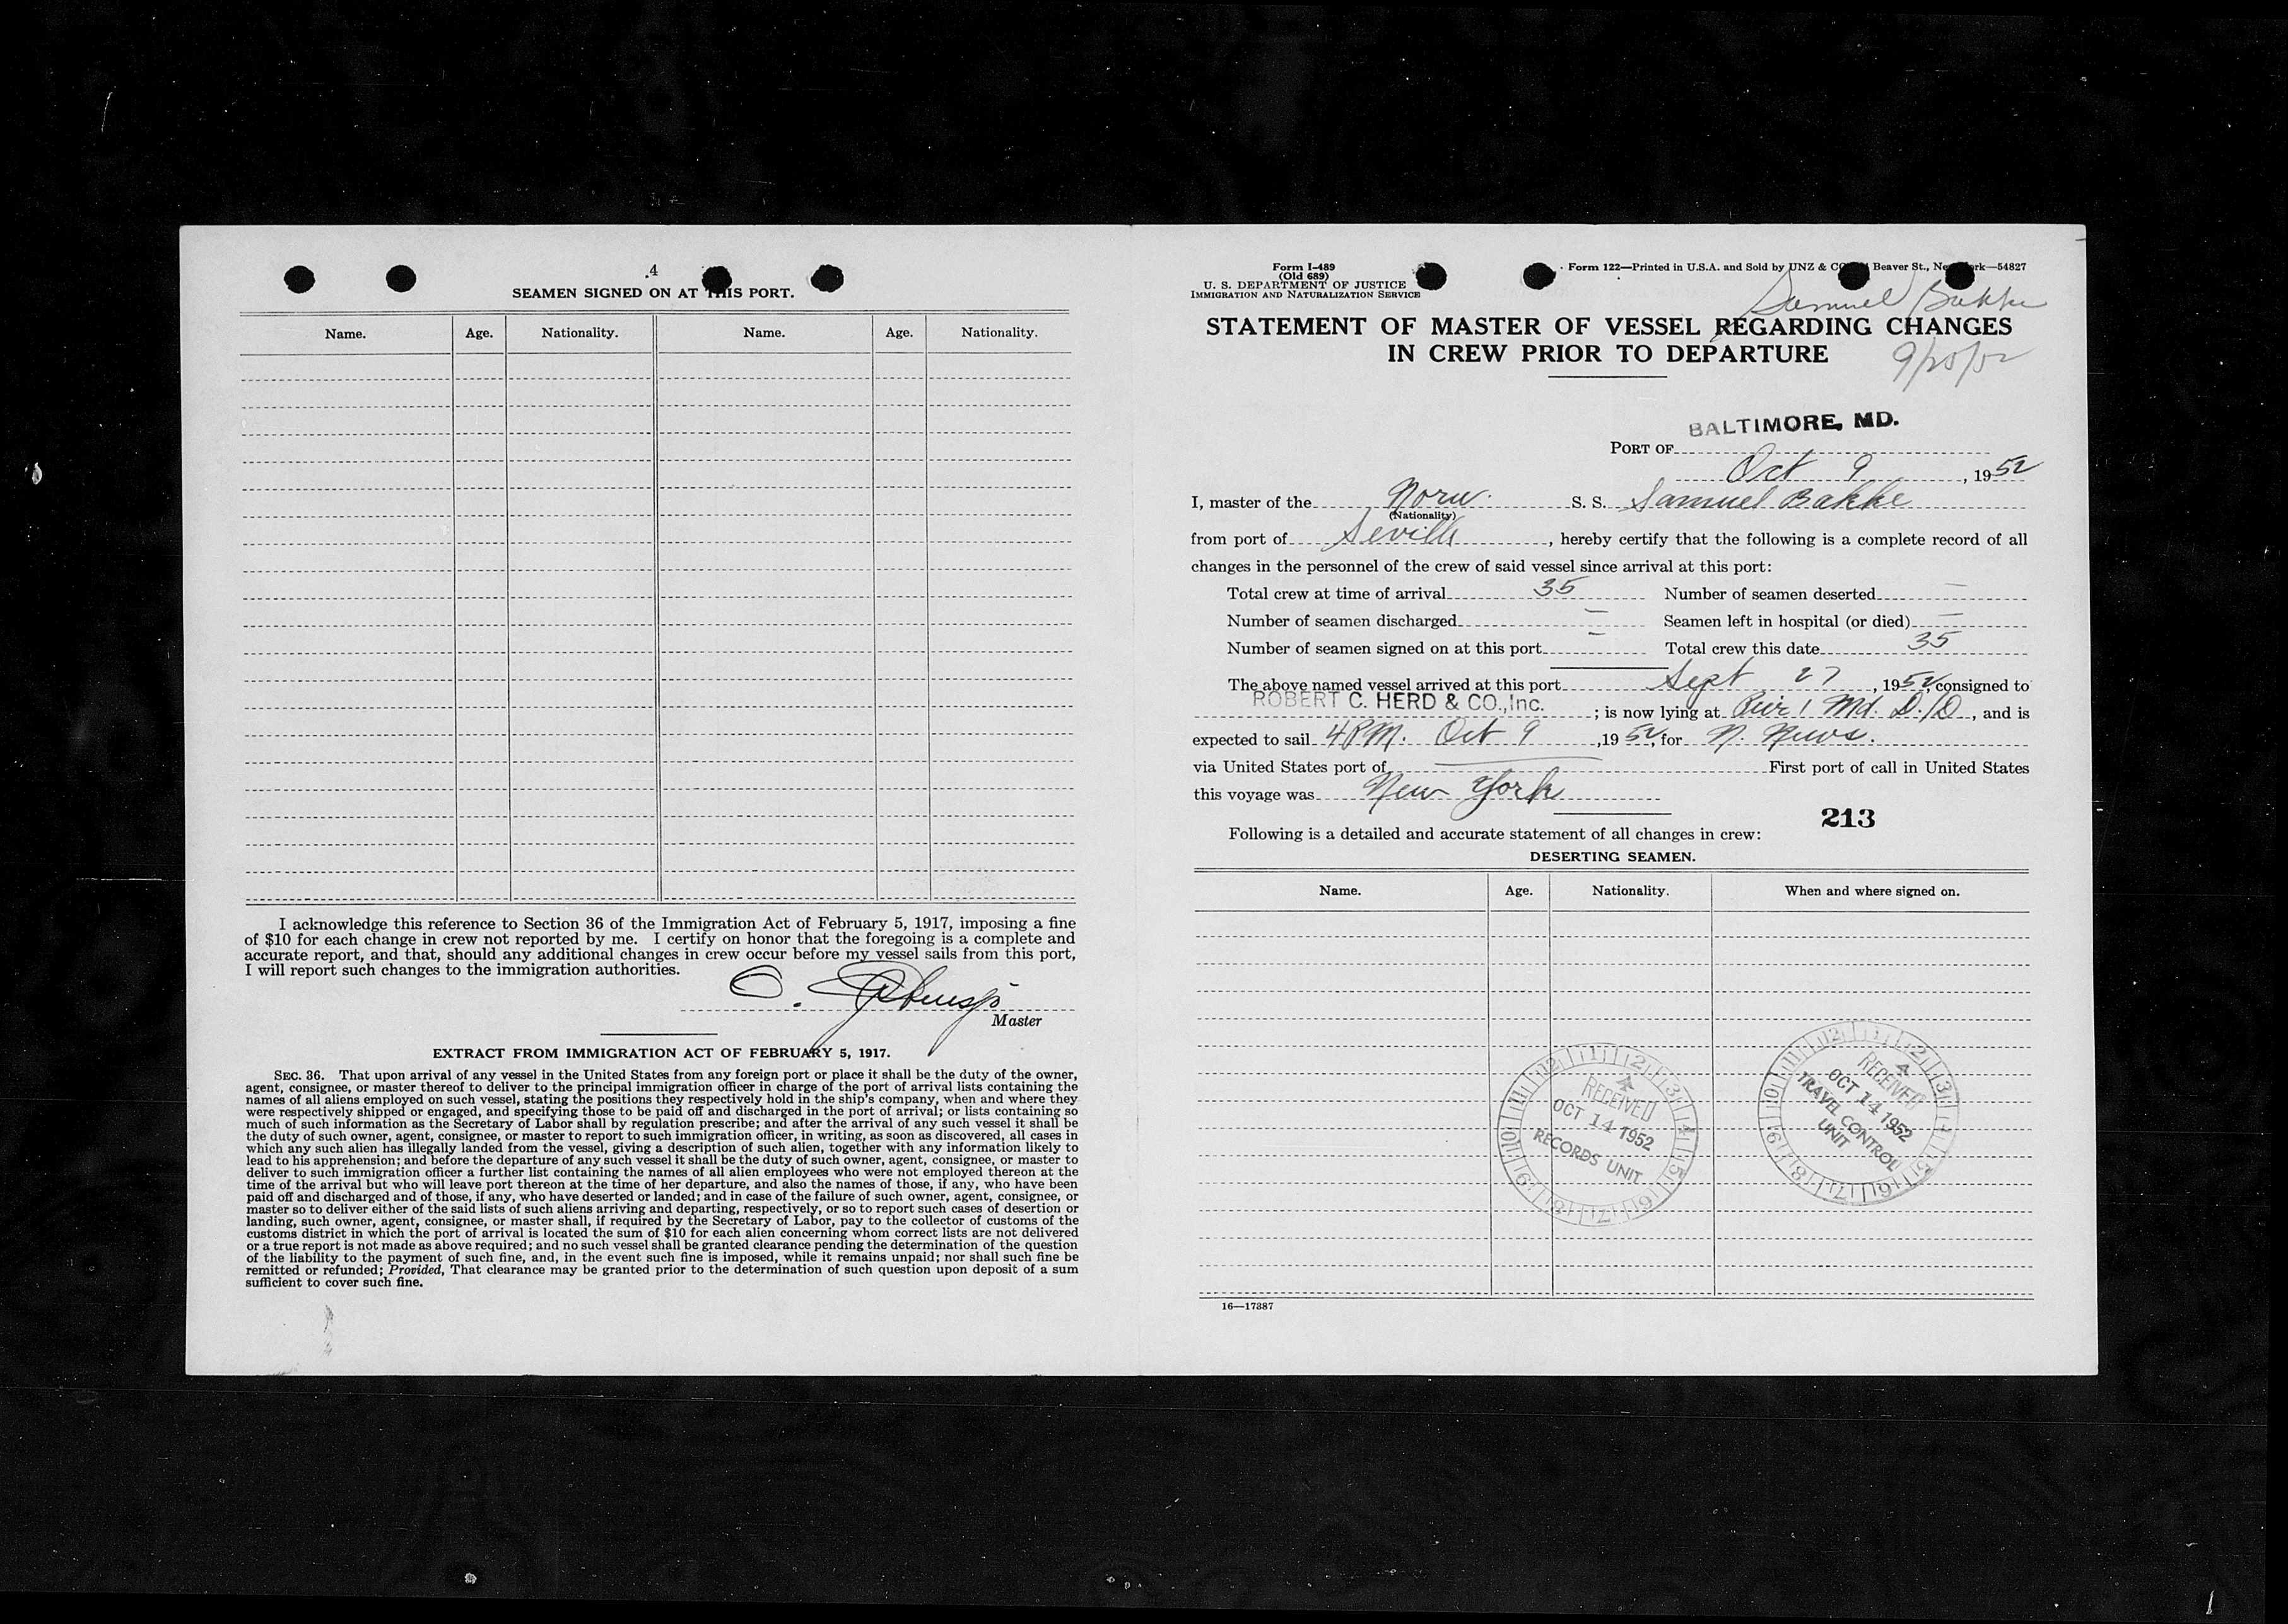 .4
SEAMEN SIGNED ON AT THIS PORT.
Name. Age. Nationality. Name. Age. Nationality.
I acknowledge this reference to Section 36 of the Immigration Act of February 5, 1917, imposing a fine
of $10 for each change in crew not reported by me. I certify on honor that the foregoing is a complete and
accurate report, and that, should any additional changes in crew occur before my vessel sails from this port,
I will report such changes to the immigration authorities.
O.
Master
EXTRACT FROM IMMIGRATION ACT OF FEBRUARY 5, 1917.
SEC. 36. That upon arrival of any vessel in the United States from any foreign port or place it shall be the duty of the owner,
agent, consignee, or master thereof to deliver to the principal immigration officer in charge of the port of arrival lists containing the
names of all aliens employed on such vessel, stating the positions they respectively hold in the ship's company, when and where they
were respectively shipped or engaged, and specifying those to be paid off and discharged in the port of arrival; or lists containing so
much of such information as the Secretary of Labor shall by regulation prescribe; and after the arrival of any such vessel it shall be
the duty of such owner, agent, consignee, or master to report to such immigration officer, in writing, as soon as discovered, all cases in
which any such alien has illegally landed from the vessel, giving a description of such alien, together with any information likely to
lead to his apprehension; and before the departure of any such vessel it shall be the duty of such owner, agent, consignee, or master to
deliver to such immigration officer a further list containing the names of all alien employees who were not employed thereon at the
time of the arrival but who will leave port thereon at the time of her departure, and also the names of those, if any, who have been
paid off and discharged and of those, if any, who have deserted or landed; and in case of the failure of such owner, agent, consignee, or
master so to deliver either of the said lists of such aliens arriving and departing, respectively, or so to report such cases of desertion or
landing, such owner, agent, consignee, or master shall, if required by the Secretary of Labor, pay to the collector of customs of the
customs district in which the port of arrival is located the sum of $10 for each alien concerning whom correct lists are not delivered
or a true report is not made as above required; and no such vessel shall be granted clearance pending the determination of the question
of the liability to the payment of such fine, and, in the event such fine is imposed, while it remains unpaid; nor shall such fine be
remitted or refunded; Provided, That clearance may be granted prior to the determination of such question upon deposit of a sum
sufficient to cover such fine.
Form I-489
(Old 689)
U. S. DEPARTMENT OF JUSTICE
IMMIGRATION AND NATURALIZATION SERVICE
Form 122—Printed in U.S.A. and Sold by UNZ & CO. Beaver St., New York—54827
Samuel Bakke
STATEMENT OF MASTER OF VESSEL REGARDING CHANGES
IN CREW PRIOR TO DEPARTURE
BALTIMORE, MD.
PORT OF
Oct 9, 1952
I, master of the Norw. S. S. Samuel Bakke
(Nationality)
from port of Seville, hereby certify that the following is a complete record of all
changes in the personnel of the crew of said vessel since arrival at this port:
Total crew at time of arrival 35 Number of seamen deserted —
Number of seamen discharged — Seamen left in hospital (or died) —
Number of seamen signed on at this port — Total crew this date 35
The above named vessel arrived at this port Sept 27, 1952, consigned to
ROBERT C. HERD & CO., Inc. ; is now lying at Pier 1 Md. D/D, and is
expected to sail 4 PM. Oct 9, 1952, for N. News.
via United States port of — First port of call in United States
this voyage was New York
213
Following is a detailed and accurate statement of all changes in crew:
DESERTING SEAMEN.
Name. Age. Nationality. When and where signed on.
RECEIVED
OCT 14 1952
RECORDS UNIT
RECEIVED
OCT 14 1952
TRAVEL CONTROL
UNIT
16—17387